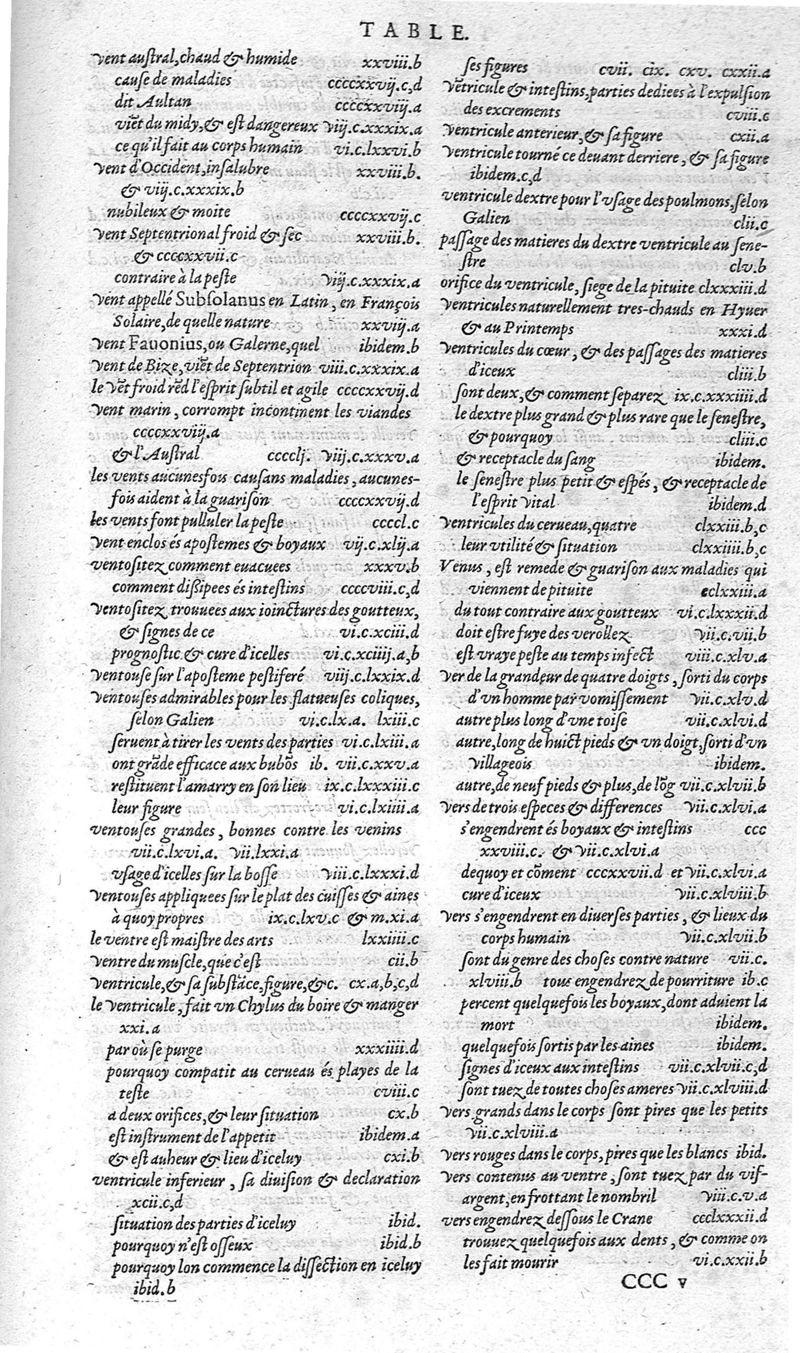 TABLE.
vent austral, chaud & humide xxviii.b
cause de maladies ccccxxvij.c,d
dit Aultan ccccxxviij.a
viẽt du midy, & est dangereux viij.c.xxxix.a
ce qu'il fait au corps humain vi.c.lxxvi.b
vent d'Occident, insalubre xxviii.b.
& viij.c.xxxix.b
nubileux & moite ccccxxvij.c
vent Septentrional froid & sec xxviii.b.
& ccccxxvii.c
contraire à la peste viij.c.xxxix.a
vent appellé Subsolanus en Latin, en François
Solaire, de quelle nature xxviij.a
vent Fauonius, ou Galerne, quel ibidem.b
vent de Bize, viẽt de Septentrion viii.c.xxxix.a
le vẽt froid rẽd l'esprit subtil et agile ccccxxvij.d
vent marin, corrompt incontinent les viandes
ccccxxviij.a
& l'Austral cccclj. viij.c.xxxv.a
les vents aucunesfois causans maladies, aucunes-
fois aident à la guarison ccccxxvij.d
les vents font pulluler la peste ccccl.c
vent enclos és apostemes & boyaux vij.c.xlij.a
ventositez comment euacuees xxxv.b
comment dißipees és intestins ccccviii.c,d
ventositez trouuees aux ioinctures des goutteux,
& signes de ce vi.c.xciii.d
prognostic & cure d'icelles vi.c.xciiij.a,b
ventouse sur l'aposteme pestiferé viij.c.lxxix.d
ventouses admirables pour les flatueuses coliques,
selon Galien vi.c.lx.a. lxiii.c
seruent à tirer les vents des parties vi.c.lxiii.a
ont grãde efficace aux bubõs ib. vii.c.xxv.a
restituent l'amarry en son lieu ix.c.lxxxiii.c
leur figure vi.c.lxiiii.a
ventouses grandes, bonnes contre les venins
vii.c.lxvi.a. vii.lxxi.a
vsage d'icelles sur la bosse viii.c.lxxxi.d
ventouses appliquees sur le plat des cuisses & aines
à quoy propres ix.c.lxv.c & m.xi.a
le ventre est maistre des arts lxxiiii.c
ventre du muscle, que c'est cii.b
ventricule, & sa substãce, figure, &c. cx.a,b,c,d
le ventricule, fait vn Chylus du boire & manger
xxi.a
par où se purge xxxiiii.d
pourquoy compatit au cerueau és playes de la
teste cviii.c
a deux orifices, & leur situation cx.b
est instrument de l'appetit ibidem.a
& est autheur & lieu d'iceluy cxi.b
ventricule inferieur, sa diuision & declaration
xcii.c,d
situation des parties d'iceluy ibid.
pourquoy n'est osseux ibid.b
pourquoy lon commence la dissection en iceluy
ibid.b
ses figures cvii. cix. cxv. cxxii.a
vẽtricule & intestins, parties dediees à l'expulsion
des excrements cviii.c
ventricule anterieur, & sa figure cxii.a
ventricule tourné ce deuant derriere, & sa figure
ibidem.c,d
ventricule dextre pour l'vsage des poulmons, selon
Galien clii.c
passage des matieres du dextre ventricule au sene-
stre clv.b
orifice du ventricule, siege de la pituite clxxxiii.d
ventricules naturellement tres-chauds en Hyuer
& au Printemps xxxi.d
ventricules du cœur, & des passages des matieres
d'iceux cliii.b
sont deux, & comment separez ix.c.xxxiiii.d
le dextre plus grand & plus rare que le senestre,
& pourquoy cliii.c
& receptacle du sang ibidem.
le senestre plus petit & espés, & receptacle de
l'esprit vital ibidem.d
ventricules du cerueau, quatre clxxiiii.b,c
leur vtilité & situation clxxiiii.b,c
Venus, est remede & guarison aux maladies qui
viennent de pituite cclxxiii.a
du tout contraire aux goutteux vi.c.lxxxii.d
doit estre fuye des verollez vii.c.vii.b
est vraye peste au temps infect viii.c.xlv.a
ver de la grandeur de quatre doigts, sorti du corps
d'vn homme par vomissement vii.c.xlv.d
autre plus long d'vne toise vii.c.xlvi.d
autre, long de huict pieds & vn doigt, sorti d'vn
villageois ibidem.
autre, de neuf pieds & plus, de lõg vii.c.xlvii.b
vers de trois especes & differences vii.c.xlvi.a
s'engendrent és boyaux & intestins ccc
xxviii.c. & vii.c.xlvi.a
dequoy et cõment cccxxvii.d et vii.c.xlvi.a
cure d'iceux vii.c.xlviii.b
vers s'engendrent en diuerses parties, & lieux du
corps humain vii.c.xlvii.b
sont du genre des choses contre nature vii.c.
xlviii.b tous engendrez de pourriture ib.c
percent quelquefois les boyaux, dont aduient la
mort ibidem.
quelquefois sortis par les aines ibidem.
signes d'iceux aux intestins vii.c.xlvii.c,d
sont tuez de toutes choses ameres vii.c.xlviii.d
vers grands dans le corps sont pires que les petits
vii.c.xlviii.a
vers rouges dans le corps, pires que les blancs ibid.
vers contenus au ventre, sont tuez par du vif-
argent, en frottant le nombril viii.c.v.a
vers engendrez dessous le Crane ccclxxxii.d
trouuez quelquefois aux dents, & comme on
les fait mourir vi.c.xxii.b
CCC v